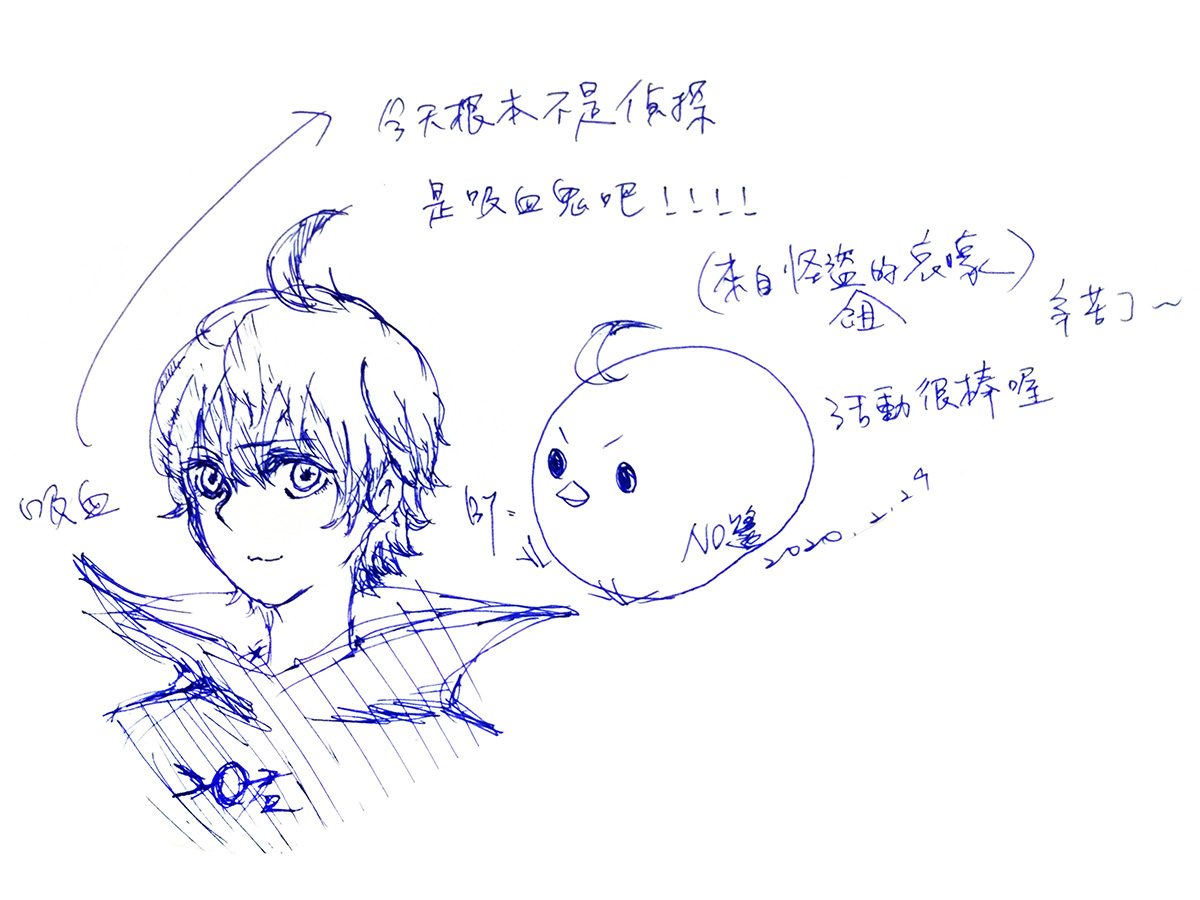 今天根本不是偵探
是吸血鬼吧！！！！
(來自怪盜組的哀嚎)
辛苦了～
活動很棒喔
吸血
BY=
2020.2.29